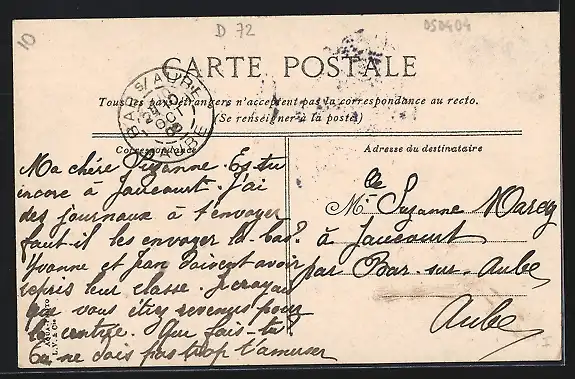 10
D 72
050404
CARTE POSTALE
Tous les pays étrangers n'acceptent pas la correspondance au recto.
(Se renseigner à la poste)
BAR S/ AUBE
OCT
AUBE
Correspondance
Ma chère Suzanne. Es tu
encore à Jaucourt. J'ai
des journaux à t'envoyer
faut-il les envoyer là-bas?
Yvonne et Jean doivent avoir
repris leur classe. Je croyais
que vous étiez revenus pour
la rentrée. Que fais-tu
Tu ne dois pas trop t'amuser
L.V. & Cie
Adresse du destinataire
Mlle Suzanne
à Jaucourt
par Bar-sur-Aube,
Aube
I